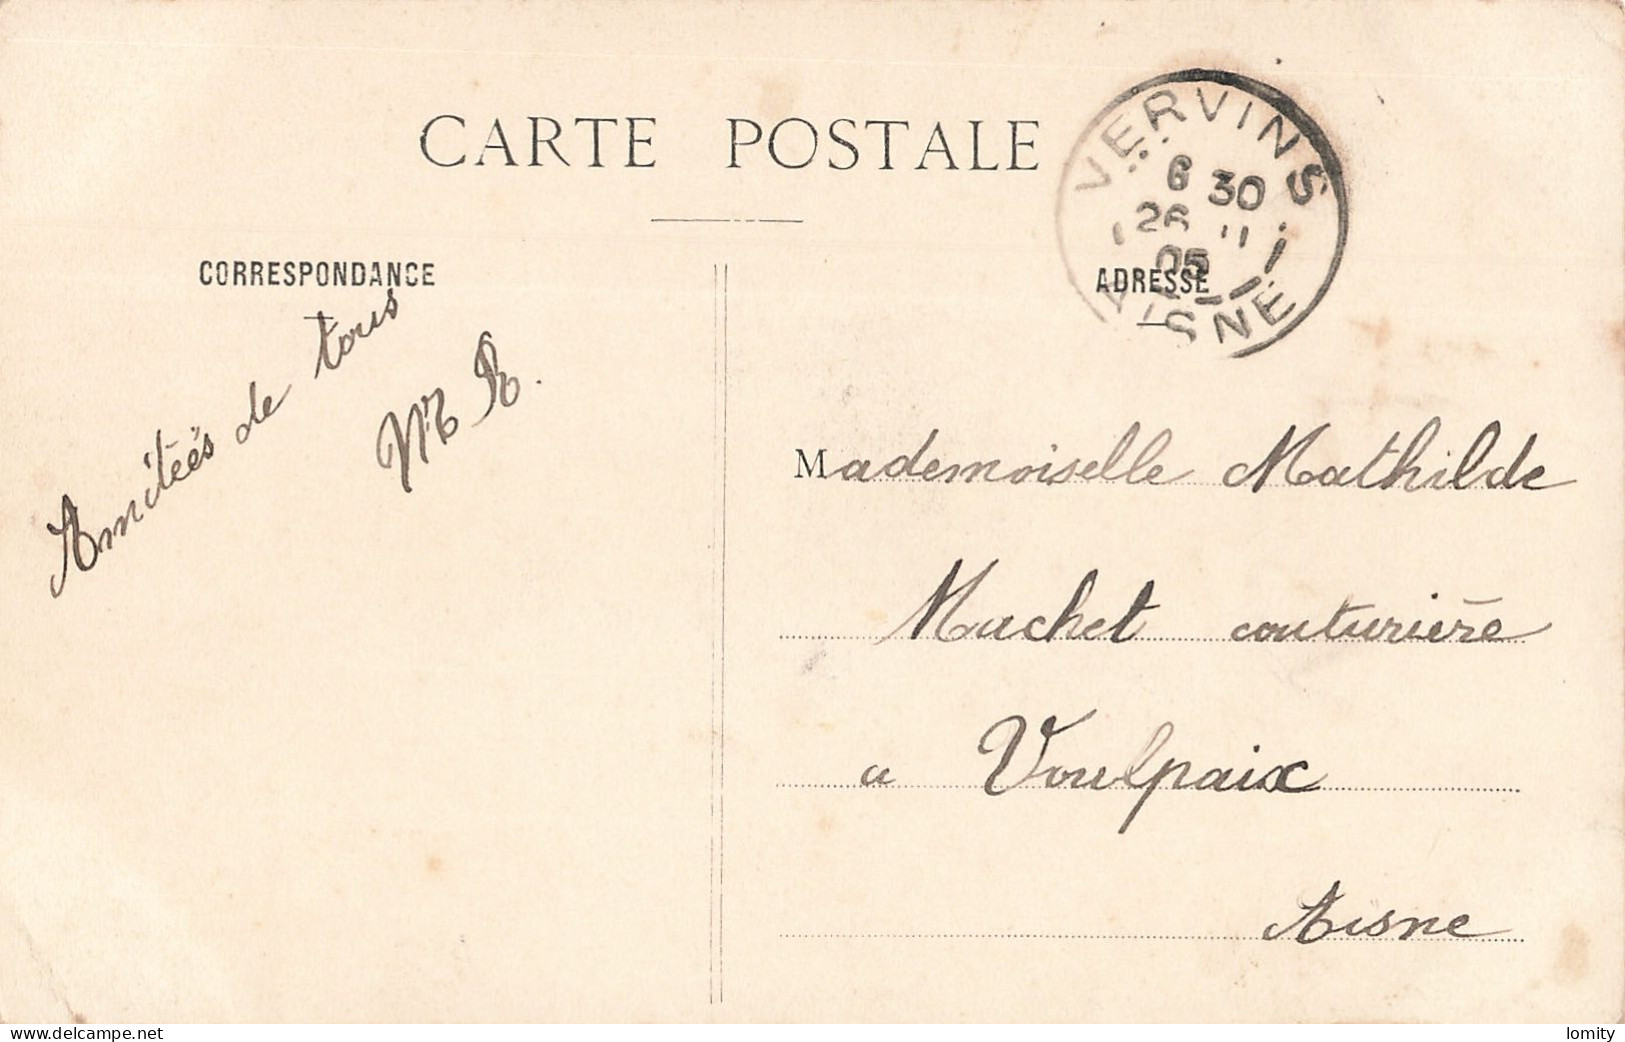 CARTE POSTALE
VERVINS
6 30
26 11
05
AISNE
CORRESPONDANCE
ADRESSE
Amitéés de tous
R.
Mademoiselle Mathilde
Machet couturière
a Voulpaix
Aisne
www.delcampe.net
lomity